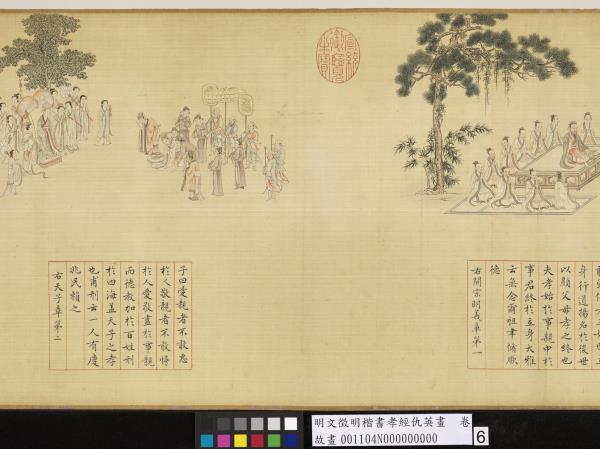 身行道揚名於後世
以顯父母孝之終也
夫孝始於事親中於
事君終於立身大雅
云無念爾祖聿脩厥
德
右開宗明義章第一
子曰愛親者不敢惡
於人敬親者不敢慢
於人愛敬盡於事親
而德教加於百姓刑
於四海蓋天子之孝
也甫刑云一人有慶
兆民賴之
右天子章第二
宣統御覽之寶
明文徵明楷書孝經仇英畫 卷
故畫 001104N000000000
6